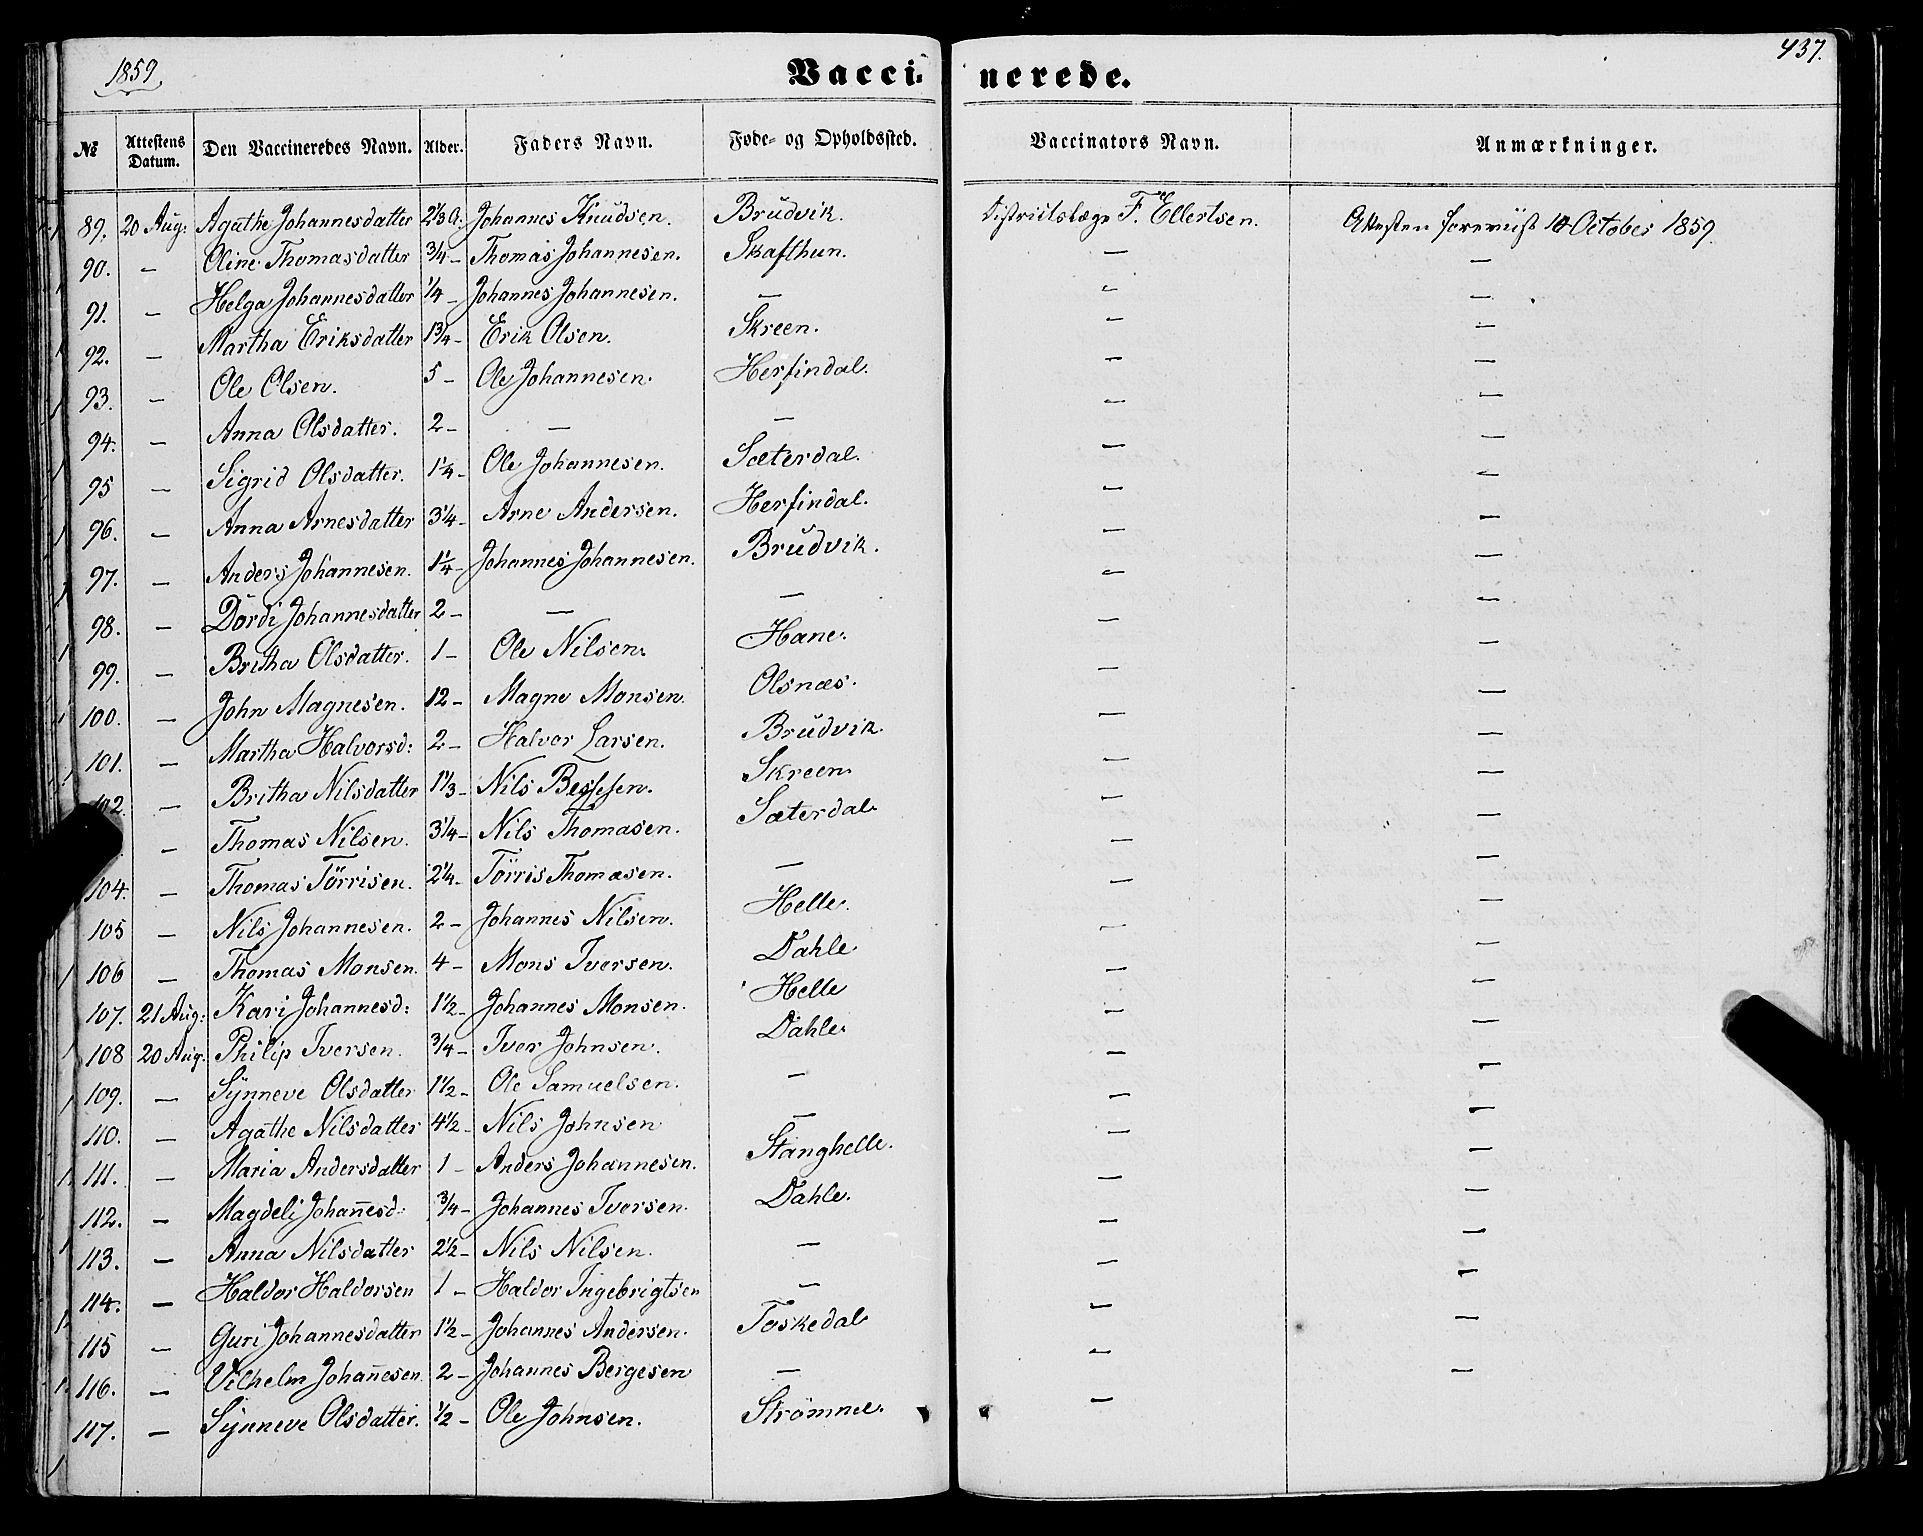 1859.
Vaccinerede.
437.
№ Attestens Datum. Den Vaccineredes Navn. Alder. Faders Navn. Føde- og Opholdssted. Vaccinators Navn. Anmærkninger.
89. 20 Aug: Agathe Johannesdatter 2⅓ A. Johannes Knudsen. Brudvik. Districtslæge F. Ellertsen. Attesten foreviist October 1859.
90. — Oline Thomasdatter ¾ — Thomas Johannesen. Skafthun. — —
91. — Helga Johannesdatter ¼ — Johannes Johannesen. — — —
92. — Martha Eriksdatter 1¾ — Erik Olsen. Skreen. — —
93. — Ole Olsen. 5 — Ole Johannesen. Herfindal. — —
94. — Anna Olsdatter. 2 — — — — —
95 — Sigrid Olsdatter. 1¼ — Ole Johannesen. Sæterdal. — —
96. — Anna Arnesdatter 3¼ — Arne Andersen. Herfindal. — —
97. — Anders Johannesen. 1¼ — Johannes Johannesen. Brudvik. — —
98. — Dordi Johannesdatter 2 — — — — —
99. — Britha Olsdatter. 1 — Ole Nilsen. Hane. — —
100. — John Magnesen. 12 — Magne Monsen. Olsnæs. — —
101. — Martha Halvorsd: 2 — Halvor Larsen. Brudvik. — —
102. — Britha Nilsdatter 1⅓ — Nils Skreen — —
— Thomas Nilsen. 3¼ — Nils Thomasen. Sæterdal — —
104. — Thomas Törrisen. 2¼ — Törris Thomasen. — — —
105 — Nils Johannesen. 2 — Johannes Nilsen. Helle. — —
106 — Thomas Monsen. 4 — Mons Iversen. Dahle — —
107. 21 Aug: Kari Johannesd: 1½ — Johannes Monsen. Helle — —
108 20 Aug: Philip Iversen. ¾ — Iver Johnsen. Dahle — —
109. — Synneve Olsdatter 1½ — Ole Samuelsen. — — —
110. — Agathe Nilsdatter 4½ — Nils Johnsen — — —
111. — Maria Andersdatter 1 — Anders Johannesen. Stanghelle. — —
112. — Magdeli Johan̄esd: ¾ — Johannes Iversen. Dahle. — —
113. — Anna Nilsdatter 2½ — Nils Nilsen. — — —
114. — Haldor Haldorsen 1 — Haldor Ingebrigtsen — — —
115 — Guri Johannesdatter 1½ — Johannes Andersen. Toskedal — —
116. — Vilhelm Johan̄esen. 2 — Johannes Bergesen — — —
117. — Synneve Olsdatter. ½ — Ole Johnsen. Strømme. —